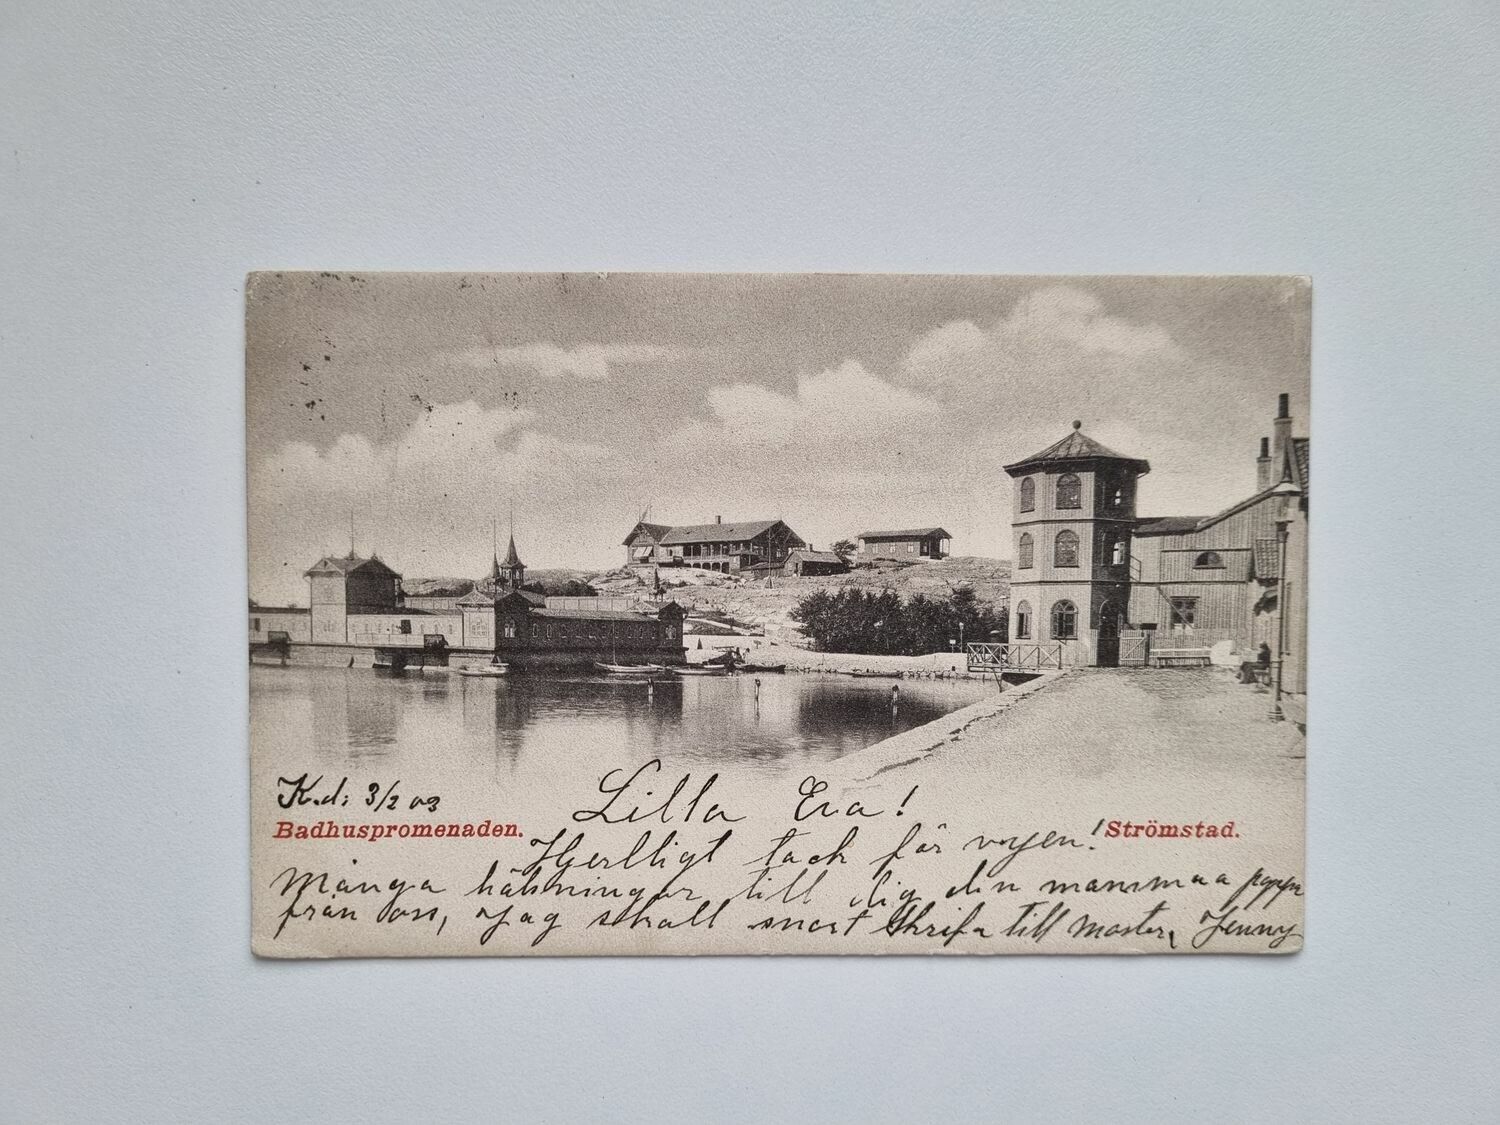 K.d: 3/2 03
Lilla Eva!
Badhuspromenaden.
Strömstad.
Hjertligt tack för vyen!
Många hälsningar till dig din mammaa pappa
från oss, Jag skall snart skrifa till moster, Jenny